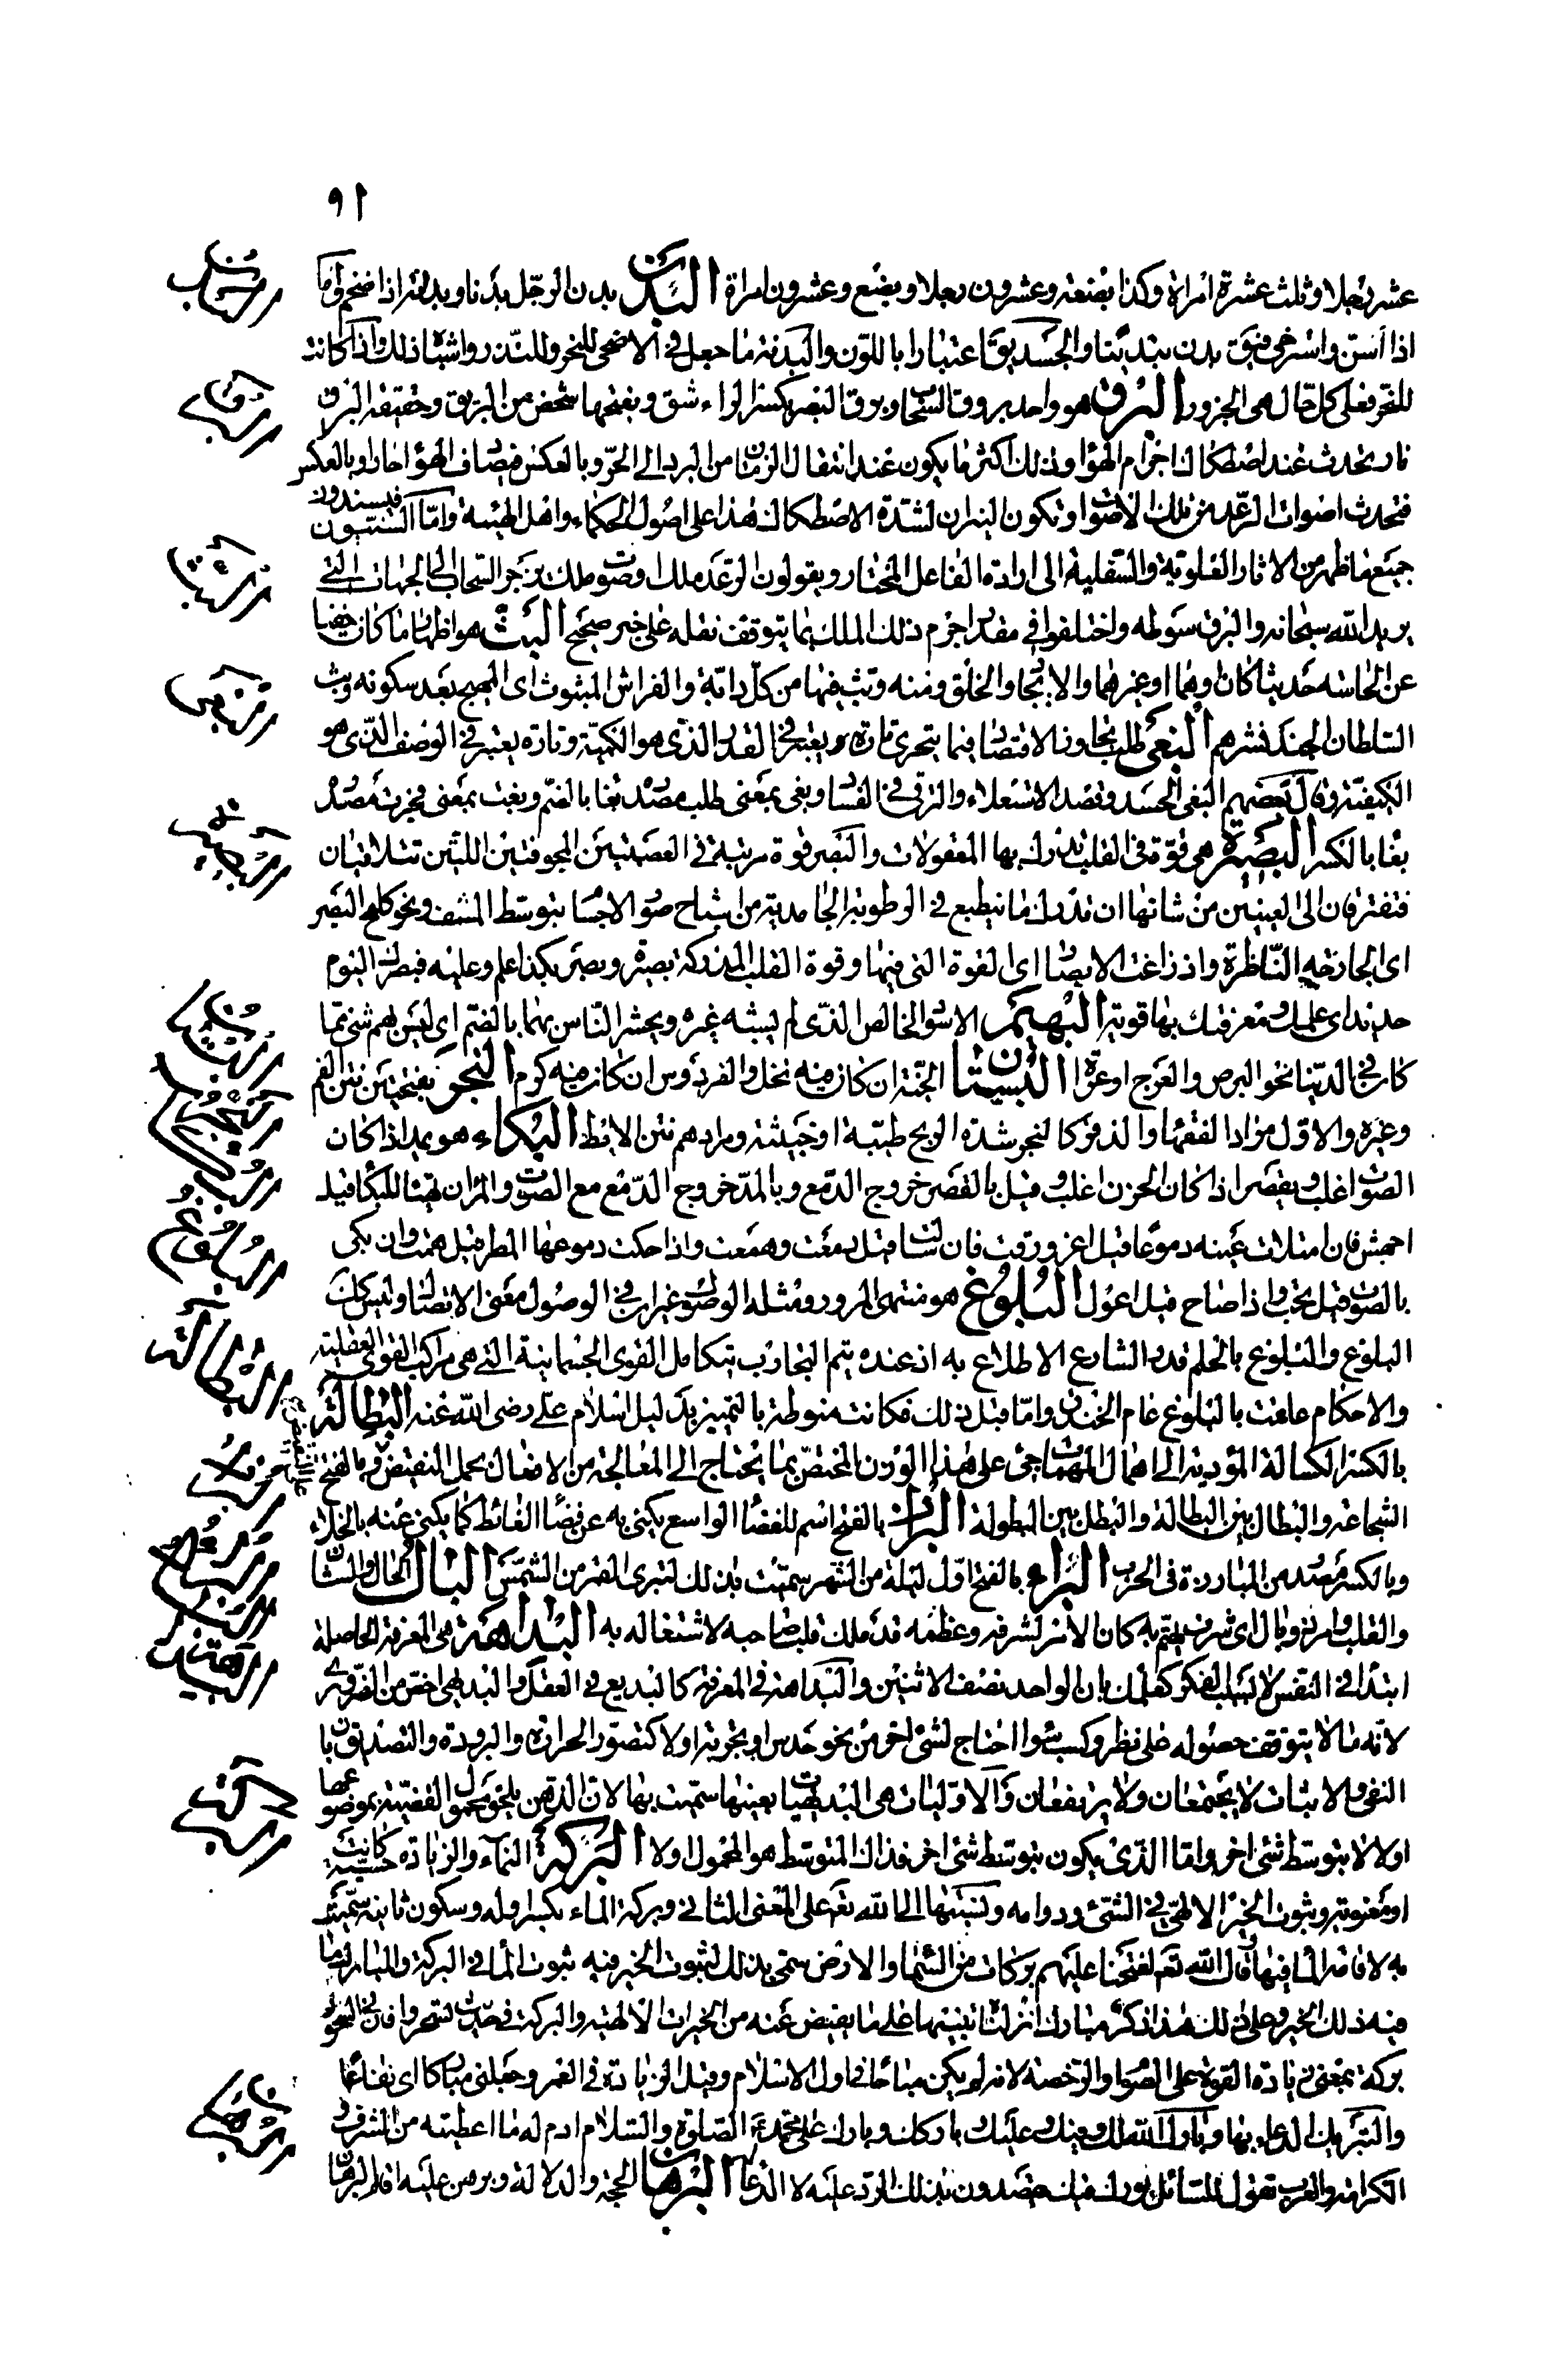 ٩١
عشر رجلا وثلث عشرة امراة وكذا بضعة وعشرون رجلا وبضع وعشرون امراة البدن بدن الرجل بدنا وبدانة اذا ضخم واما
اذا اسن واسترخى فيق بدن تبدينا والجسد يق اعتبارا باللون والبدنة ما جعل فى الاضحى للنحر وللنذر واشباه ذلك واذا كانت
للنحر فعلى كل حال هى الجزور البرق هو واحد بروق السحاب وبرق البصر بكسر الراء شق وبفتحها شخص من البريق وحقيقة البرق
نار تحدث عند اصطكاك اجرام الهواء وذلك اكثر ما يكون عند انتقال الزمان من البرد الى الحر وبالعكس فيصادف الهواء حارا وبالعكس
فتحدث اصوات الرعد من تلك الاصوات وتكون النيران لشدة الاصطكاك هذا على اصول الحكماء واهل الهيئة واما السنيون فيسندون
جميع ما ظهر من الاثار العلوية والسفلية الى ارادة الفاعل المختار ويقولون الرعد ملك او صوت ملك يزجر السحاب الى الجهات التى
يريد الله سبحانه والبرق سوطه واختلفوا فى مقدار جرم ذلك الملك بما يتوقف نقله على خبر صحيح البث هو اظهار ما كان خفيا
عن الحاسة حديثا كان او هما او غيرهما والايجاد والخلق ومنه وبث فيها من كل دابة والفراش المبثوث اى المهيج بعد سكونه وبث
السلطان الجند نشرهم البغى طلب تجاوز الاقتصاد فيما يتحرى تارة يعتبر فى القدر الذى هو الكمية وتارة يعتبر فى الوصف الذى هو
الكيفية وقال بعضهم البغى الحسد وقصد الاستعلاء والترقى فى الفساد وبغى بمعنى طلب مصدره بغا بالضم وبغت بمعنى فجرت مصدره
بغا بالكسر البصيرة هى قوة فى القلب تدرك بها المعقولات والبصر قوة مرتبة فى العصبتين المجوفتين اللتين تتلاقيان
فتفترقان الى العينين من شانها ان تدرك ما ينطبع فى الرطوبة الجامدية من اشباح صور الاجسام بتوسط المشف ونحو كلمح البصر
اى الجارحة الناظرة واذ زاغت الابصار اى القوة التى فيها وقوة القلب المدركة بصيرة وبصر بكذا علم وعليه فبصرك اليوم
حديد اى علمك ومعرفتك بها قوية البهيم الاسود الخالص الذى لم يشبه غيره ويحشر الناس بهما بالضم اى ليس بهم شئ مما
كان فى الدنيا نحو البرص والعرج او عراة البستان الجنة ان كان فيه نخل والفردوس ان كان فيه كرم البخر بفتحتين نتن الفم
وغيره والاول مراد الفقهاء والذفر كالبخر شدة الريح طيبة او خبيثة ومرادهم نتن الابط البكاء هو يمد اذا كان
الصوت اغلب ويقصر اذا كان الحزن اغلب وقيل بالقصر خروج الدمع وبالمد خروج الدمع مع الصوت والمران تهيئا للبكا قيل
اجهش فان امتلات عينه دموعا قيل اغرورقت فان سالت قيل دمعت وهمعت واذا حكت دموعها المطر قيل همت وان بكى
بالصوت قيل نحب واذا صاح قيل اعول البلوغ هو منتهى المرور ومثله الوصول غير ان فى الوصول معنى الاتصال وليس كذلك
البلوغ والبلوغ بالحلم قدر الشارع الاطلاع به اذ عنده يتم التجارب بتكامل القوى الجسمانية التى هى مراكب القوى العقلية
والاحكام علقت بالبلوغ عام الخندق واما قبل ذلك فكانت منوطة بالتمييز بدليل اسلام على رضى الله عنه البطالة
بالكسر الكسالة المؤدية الى اهمال المهمات جئ على هذا الوزن المختص بما يحتاج الى المعالجة من الافعال بحمل النقيض وبالفتح
الشجاعة والبطال بين البطالة والبطل بين البطولة البراز بالفتح اسم للفضاء الواسع يكنى به عن فضاء الغائط كما يكنى عنه بالخلاء
وبالكسر مصدر من المبارزة فى الحرب البراء بالفتح اول ليلة من الشهر سميت بذلك لتبرى القمر من الشمس البال الحال والشان
والقلب وامر ذو بال اى شرف يهتم به كان الامر لشرفه وعظمه قد ملك قلب صاحبه لاشتغاله به البداهة هى المعرفة الحاصلة
ابتداء فى النفس لا بسبب الفكر كعلمك بان الواحد نصف الاثنين والبداهة فى المعرفة كالبديع فى العقل والبديهى اخص من الضرورى
لانه ما لا يتوقف حصوله على نظر وكسب سواء احتاج لشئ اخر من نحو حدس او تجربة اولا كتصور الحرارة والبرودة والتصديق بان
النفى والاثبات لا يجتمعان ولا يرتفعان والاوليات هى البديهيات بعينها سميت بها لان الذهن يلحق محمول القضية بموضوعها
اولا لا بتوسط شئ اخر واما الذى يكون بتوسط شئ اخر فذاك المتوسط هو المحمول اولا البركة النماء والزيادة حسية كانت
او معنوية وثبوت الخير الالهى فى الشئ ودوامه ونسبتها الى الله تعالى على المعنى الثانى وبركة الماء بكسر اوله وسكون ثانيه سميت
به لاقامة الماء فيها قال الله تع لفتحنا عليهم بركات من السماء والارض سمى بذلك لثبوت الخير فيه ثبوت الماء فى البركة والمبارك ما
فيه ذلك الخير وعلى ذلك هذا ذكر مبارك انزلناه تنبيها على ما يفيض عنه من الخيرات الالهية والبركة فى حديث تسحروا فان فى السحور
بركة بمعنى زيادة القوة على الصوم او الرخصة لانه لم يكن مباحا فى اول الاسلام وقيل الزيادة فى العمر وجعلنى مباركا اى نفاعا
والتبريك الدعاء بها وبارك الله لك وفيك وعليك وباركك وبارك على محمد عليه الصلوة والسلام ادم له ما اعطيته من الشرف و
الكرامة والعرب تقول للسائل بورك فيك يقصدون بذلك الرد عليه لا الدعاء البرهان الحجة والدلالة وبرهن عليه اقام البرهان